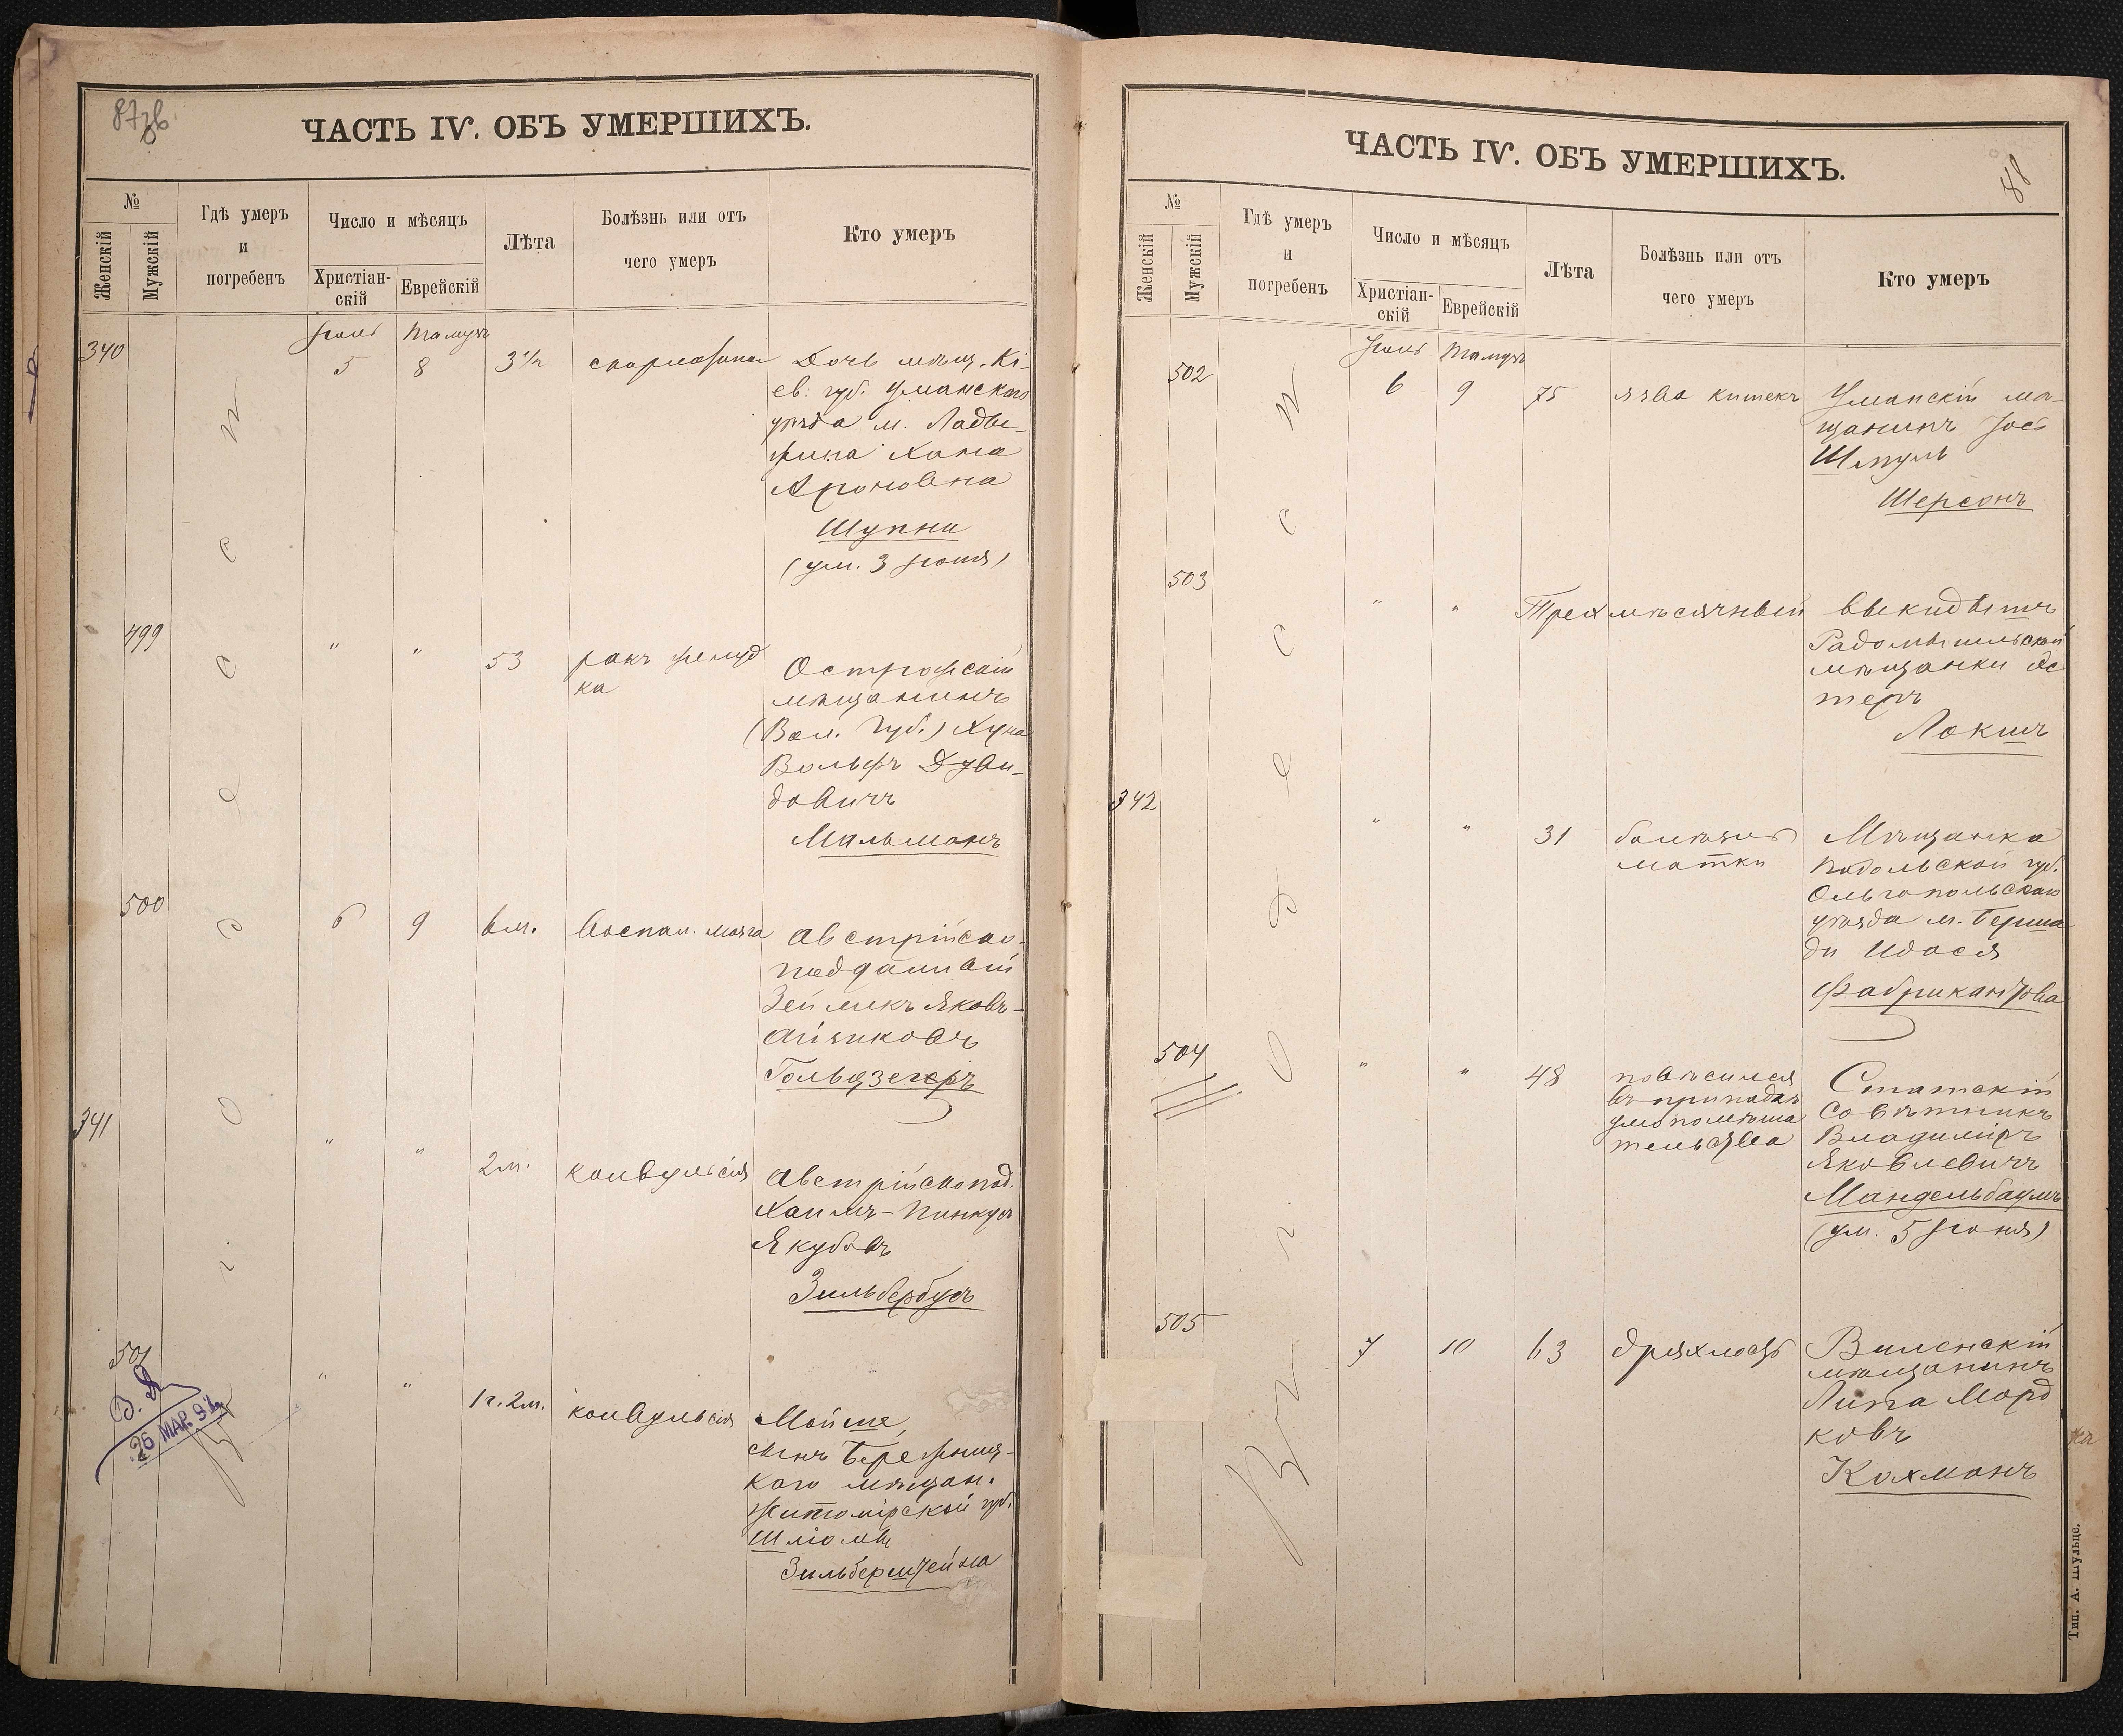 87зв
ЧАСТЬ IV. ОБЪ УМЕРШИХЪ.
№
Женскій
Мужскій
Гдѣ умеръ
и
погребенъ
Число и мѣсяцъ
Христіан-
скій
Еврейскій
Лѣта
Болѣзнь или отъ
чего умеръ
Кто умеръ
Въ г. Одессѣ
340
Іюнь Тамузъ
5 8 3½ скарлатина
Дочь мѣщ. Кі-
ев. губ. Уманскаго
уѣзда м. Лады-
жина Хана
Ароновна
Шупни
(ум. 3 Іюня)
499
" " 53 ракъ желуд
ка
Острожскій
мѣщанинъ
(Вол. Губ.) Хуна
Вольфъ Дуви-
довичъ
Мильманъ
500
6 9 6 м. воспал. мозга
Австрійско-
подданный
Зейликъ Яковъ-
Айзиковъ
Гольдзегеръ
341
" " 2 м. конвульсія
Австрійскопод.
Хаимъ-Пинкусъ
Якубовъ
Зильбербушъ
501
" " 1 г. 2 м. конвульсія
Мойше,
сынъ Бережниц-
каго мѣщан.
Житомірской губ.
Шліомы
Зильберштейна
26 МАР. 9
ЧАСТЬ IV. ОБЪ УМЕРШИХЪ.
88
№
Женскій
Мужскій
Гдѣ умеръ
и
погребенъ
Число и мѣсяцъ
Христіан-
скій
Еврейскій
Лѣта
Болѣзнь или отъ
чего умеръ
Кто умеръ
Въ г. Одессѣ
502
Іюнь Тамузъ
6 9 75 язва кишекъ
Уманскій мѣ-
щанинъ Іось
Шмуль
Шерсонъ
503
" " Трехмѣсячный выкидышъ
Радомысльской
мѣщанки Эс
теръ
Локшъ
342
" " 31 болѣзнь
матки
Мѣщанка
Подольской губ.
Ольгопольскаго
уѣзда м. Берша
ди Идася
Фабрикантова
504
" " 48 повѣсился
въ припадкѣ
умопомѣша
тельства
Статскій
Совѣтникъ
Владиміръ
Яковлевичъ
Мандельбаумъ
(ум. 5 Іюня)
505
7 10 63 дряхлость
Виленскій
мѣщанинъ
Липа Морд
ковъ
Кохманъ
Тип. А. Шульце.